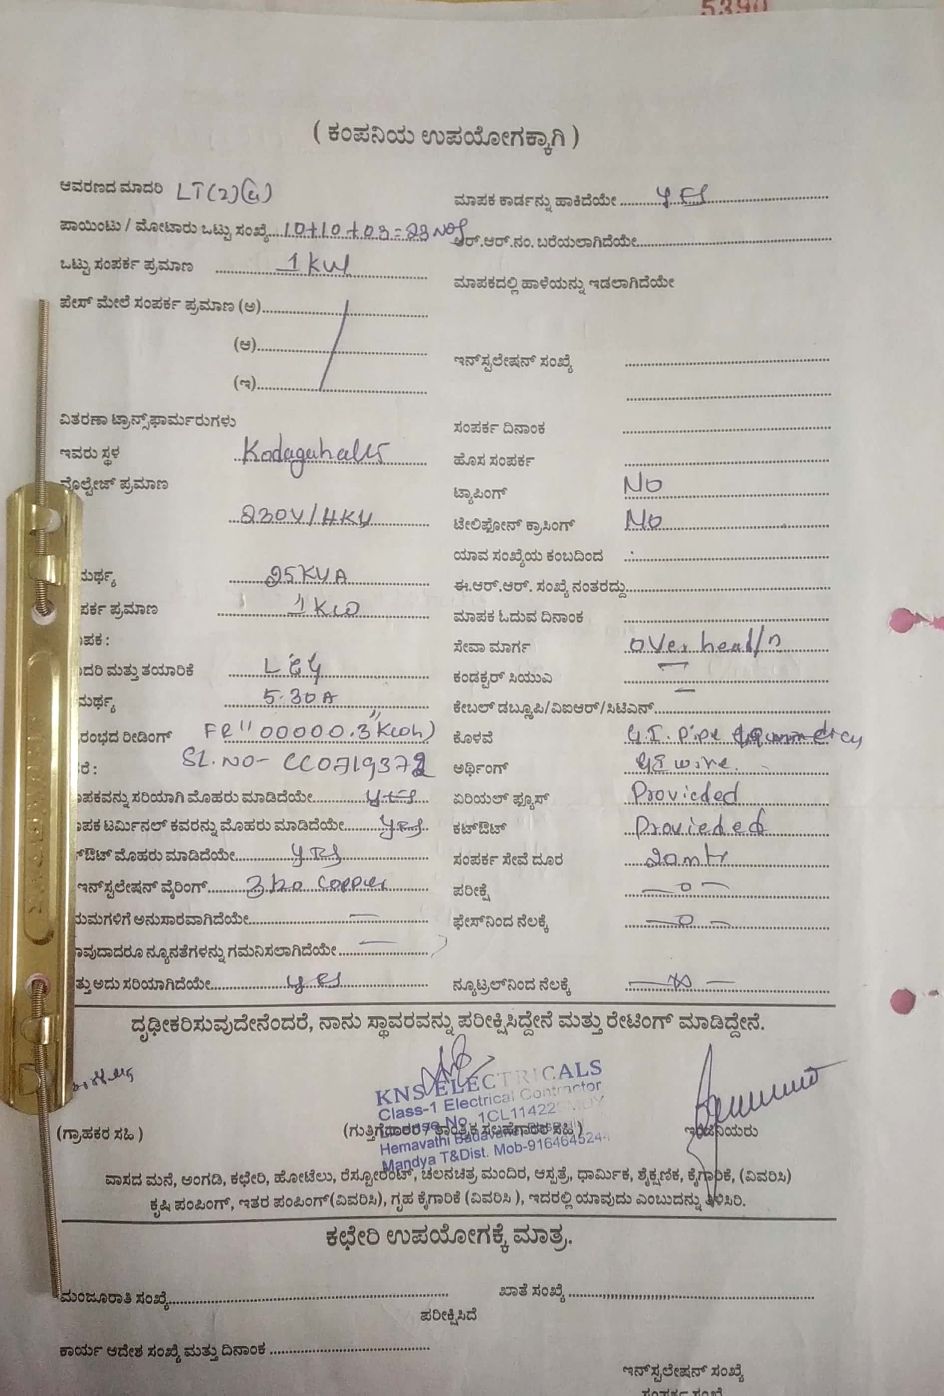 5390
( ಕಂಪನಿಯ ಉಪಯೋಗಕ್ಕಾಗಿ )
ಆವರಣದ ಮಾದರಿ LT(2)(a)
ಮಾಪಕ ಕಾರ್ಡನ್ನು ಹಾಕಿದೆಯೇ ........ YES
ಪಾಯಿಂಟು / ಮೋಟಾರು ಒಟ್ಟು ಸಂಖ್ಯೆ... 10+10+03=23 NOS
ಆರ್.ಆರ್.ನಂ. ಬರೆಯಲಾಗಿದೆಯೇ........
ಒಟ್ಟು ಸಂಪರ್ಕ ಪ್ರಮಾಣ ........ 1 KW
ಮಾಪಕದಲ್ಲಿ ಹಾಳೆಯನ್ನು ಇಡಲಾಗಿದೆಯೇ
ಪೇಸ್ ಮೇಲೆ ಸಂಪರ್ಕ ಪ್ರಮಾಣ (ಅ)........
(ಆ)........
(ಇ)........
ಇನ್‌ಸ್ಟಲೇಷನ್ ಸಂಖ್ಯೆ ........
ವಿತರಣಾ ಟ್ರಾನ್ಸ್‌ಫಾರ್ಮರುಗಳು
ಸಂಪರ್ಕ ದಿನಾಂಕ ........
ಇವರು ಸ್ಥಳ Kodagahalli
ಹೊಸ ಸಂಪರ್ಕ ........
ವೊಲ್ಟೇಜ್ ಪ್ರಮಾಣ
ಟ್ಯಾಪಿಂಗ್ No
230V/11KV
ಟೇಲಿಫೋನ್ ಕ್ರಾಸಿಂಗ್ No
ಯಾವ ಸಂಖ್ಯೆಯ ಕಂಬದಿಂದ ........
ಮರ್ಥ್ಯ 25KVA
ಈ.ಆರ್.ಆರ್. ಸಂಖ್ಯೆ ನಂತರದ್ದು........
ಪರ್ಕ ಪ್ರಮಾಣ 1KW
ಮಾಪಕ ಓದುವ ದಿನಾಂಕ ........
ಪಕ :
ಸೇವಾ ಮಾರ್ಗ overhead
ದರಿ ಮತ್ತು ತಯಾರಿಕೆ L&G
ಕಂಡಕ್ಟರ್ ಸಿಯುವಿ
ಮರ್ಥ್ಯ 5-30A
ಕೇಬಲ್ ಡಬ್ಲ್ಯೂಪಿ/ವಿಐಆರ್/ಸಿಟಿಎನ್........
ರಂಭದ ರೀಡಿಂಗ್ FR" 00000.3 Kwh)
ಕೊಳವೆ G.I. Pipe
ರೆ : SL.NO- CC0719372
ಅರ್ಥಿಂಗ್ GI wire
ಪಕವನ್ನು ಸರಿಯಾಗಿ ಮೊಹರು ಮಾಡಿದೆಯೇ........ yes
ಏರಿಯಲ್ ಫ್ಯೂಸ್ Provieded
ಪಕ ಟರ್ಮಿನಲ್ ಕವರನ್ನು ಮೊಹರು ಮಾಡಿದೆಯೇ........ yes
ಕಟ್‌ಔಟ್ Provieded
ಔಟ್ ಮೊಹರು ಮಾಡಿದೆಯೇ........ yes
ಸಂಪರ್ಕ ಸೇವೆ ದೂರ 20mtr
ಇನ್‌ಸ್ಟಲೇಷನ್ ವೈರಿಂಗ್........ 3/20 copper
ಪರೀಕ್ಷೆ — 0 —
ಯಮಗಳಿಗೆ ಅನುಸಾರವಾಗಿದೆಯೇ........ —
ಫೇಸ್‌ನಿಂದ ನೆಲಕ್ಕೆ — 0 —
ಾವುದಾದರೂ ನ್ಯೂನತೆಗಳನ್ನು ಗಮನಿಸಲಾಗಿದೆಯೇ........ —
ತ್ತು ಅದು ಸರಿಯಾಗಿದೆಯೇ........ yes
ನ್ಯೂಟ್ರಲ್‌ನಿಂದ ನೆಲಕ್ಕೆ
ದೃಢೀಕರಿಸುವುದೇನೆಂದರೆ, ನಾನು ಸ್ಥಾವರವನ್ನು ಪರೀಕ್ಷಿಸಿದ್ದೇನೆ ಮತ್ತು ರೇಟಿಂಗ್ ಮಾಡಿದ್ದೇನೆ.
KNS ELECTRICALS
Class-1 Electrical Contractor
License No. 1CL11422
Hemavathi Badavane
Mandya T&Dist. Mob-9164645244
(ಗ್ರಾಹಕರ ಸಹಿ )
(ಗುತ್ತಿಗೆದಾರರ / ತಾಂತ್ರಿಕ ಸಲಹೆಗಾರರ ಸಹಿ )
ಇಂಜಿನಿಯರು
ವಾಸದ ಮನೆ, ಅಂಗಡಿ, ಕಛೇರಿ, ಹೋಟೆಲು, ರೆಸ್ಟೋರೆಂಟ್, ಚಲನಚಿತ್ರ ಮಂದಿರ, ಆಸ್ಪತ್ರೆ, ಧಾರ್ಮಿಕ, ಶೈಕ್ಷಣಿಕ, ಕೈಗಾರಿಕೆ, (ವಿವರಿಸಿ)
ಕೃಷಿ ಪಂಪಿಂಗ್, ಇತರ ಪಂಪಿಂಗ್(ವಿವರಿಸಿ), ಗೃಹ ಕೈಗಾರಿಕೆ (ವಿವರಿಸಿ ), ಇದರಲ್ಲಿ ಯಾವುದು ಎಂಬುದನ್ನು ತಿಳಿಸಿರಿ.
ಕಛೇರಿ ಉಪಯೋಗಕ್ಕೆ ಮಾತ್ರ.
ಮಂಜೂರಾತಿ ಸಂಖ್ಯೆ........
ಖಾತೆ ಸಂಖ್ಯೆ ........
ಪರೀಕ್ಷಿಸಿದೆ
ಕಾರ್ಯ ಆದೇಶ ಸಂಖ್ಯೆ ಮತ್ತು ದಿನಾಂಕ ........
ಇನ್‌ಸ್ಟಲೇಷನ್ ಸಂಖ್ಯೆ
ಸಂಪರ್ಕ ಸಂಖ್ಯೆ